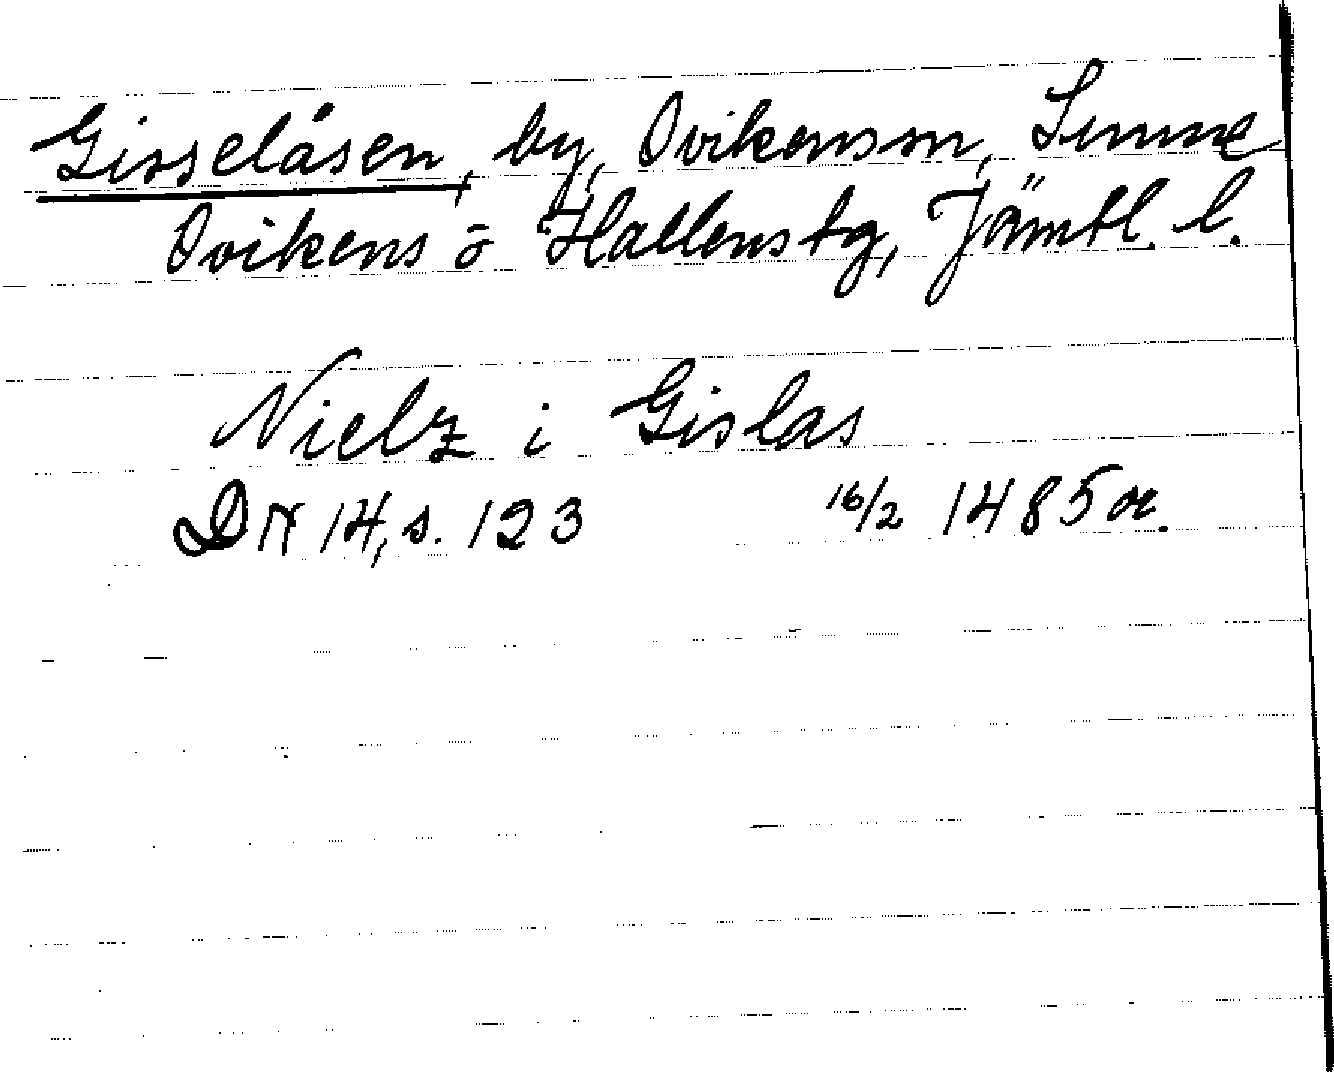 Gisselåsen, by, Ovikens sn, Sunne
Ovikens o Hallens tg, Jämtl. l.
Nielz i Gislas
DN 14, s. 123 16/2 1485 or.